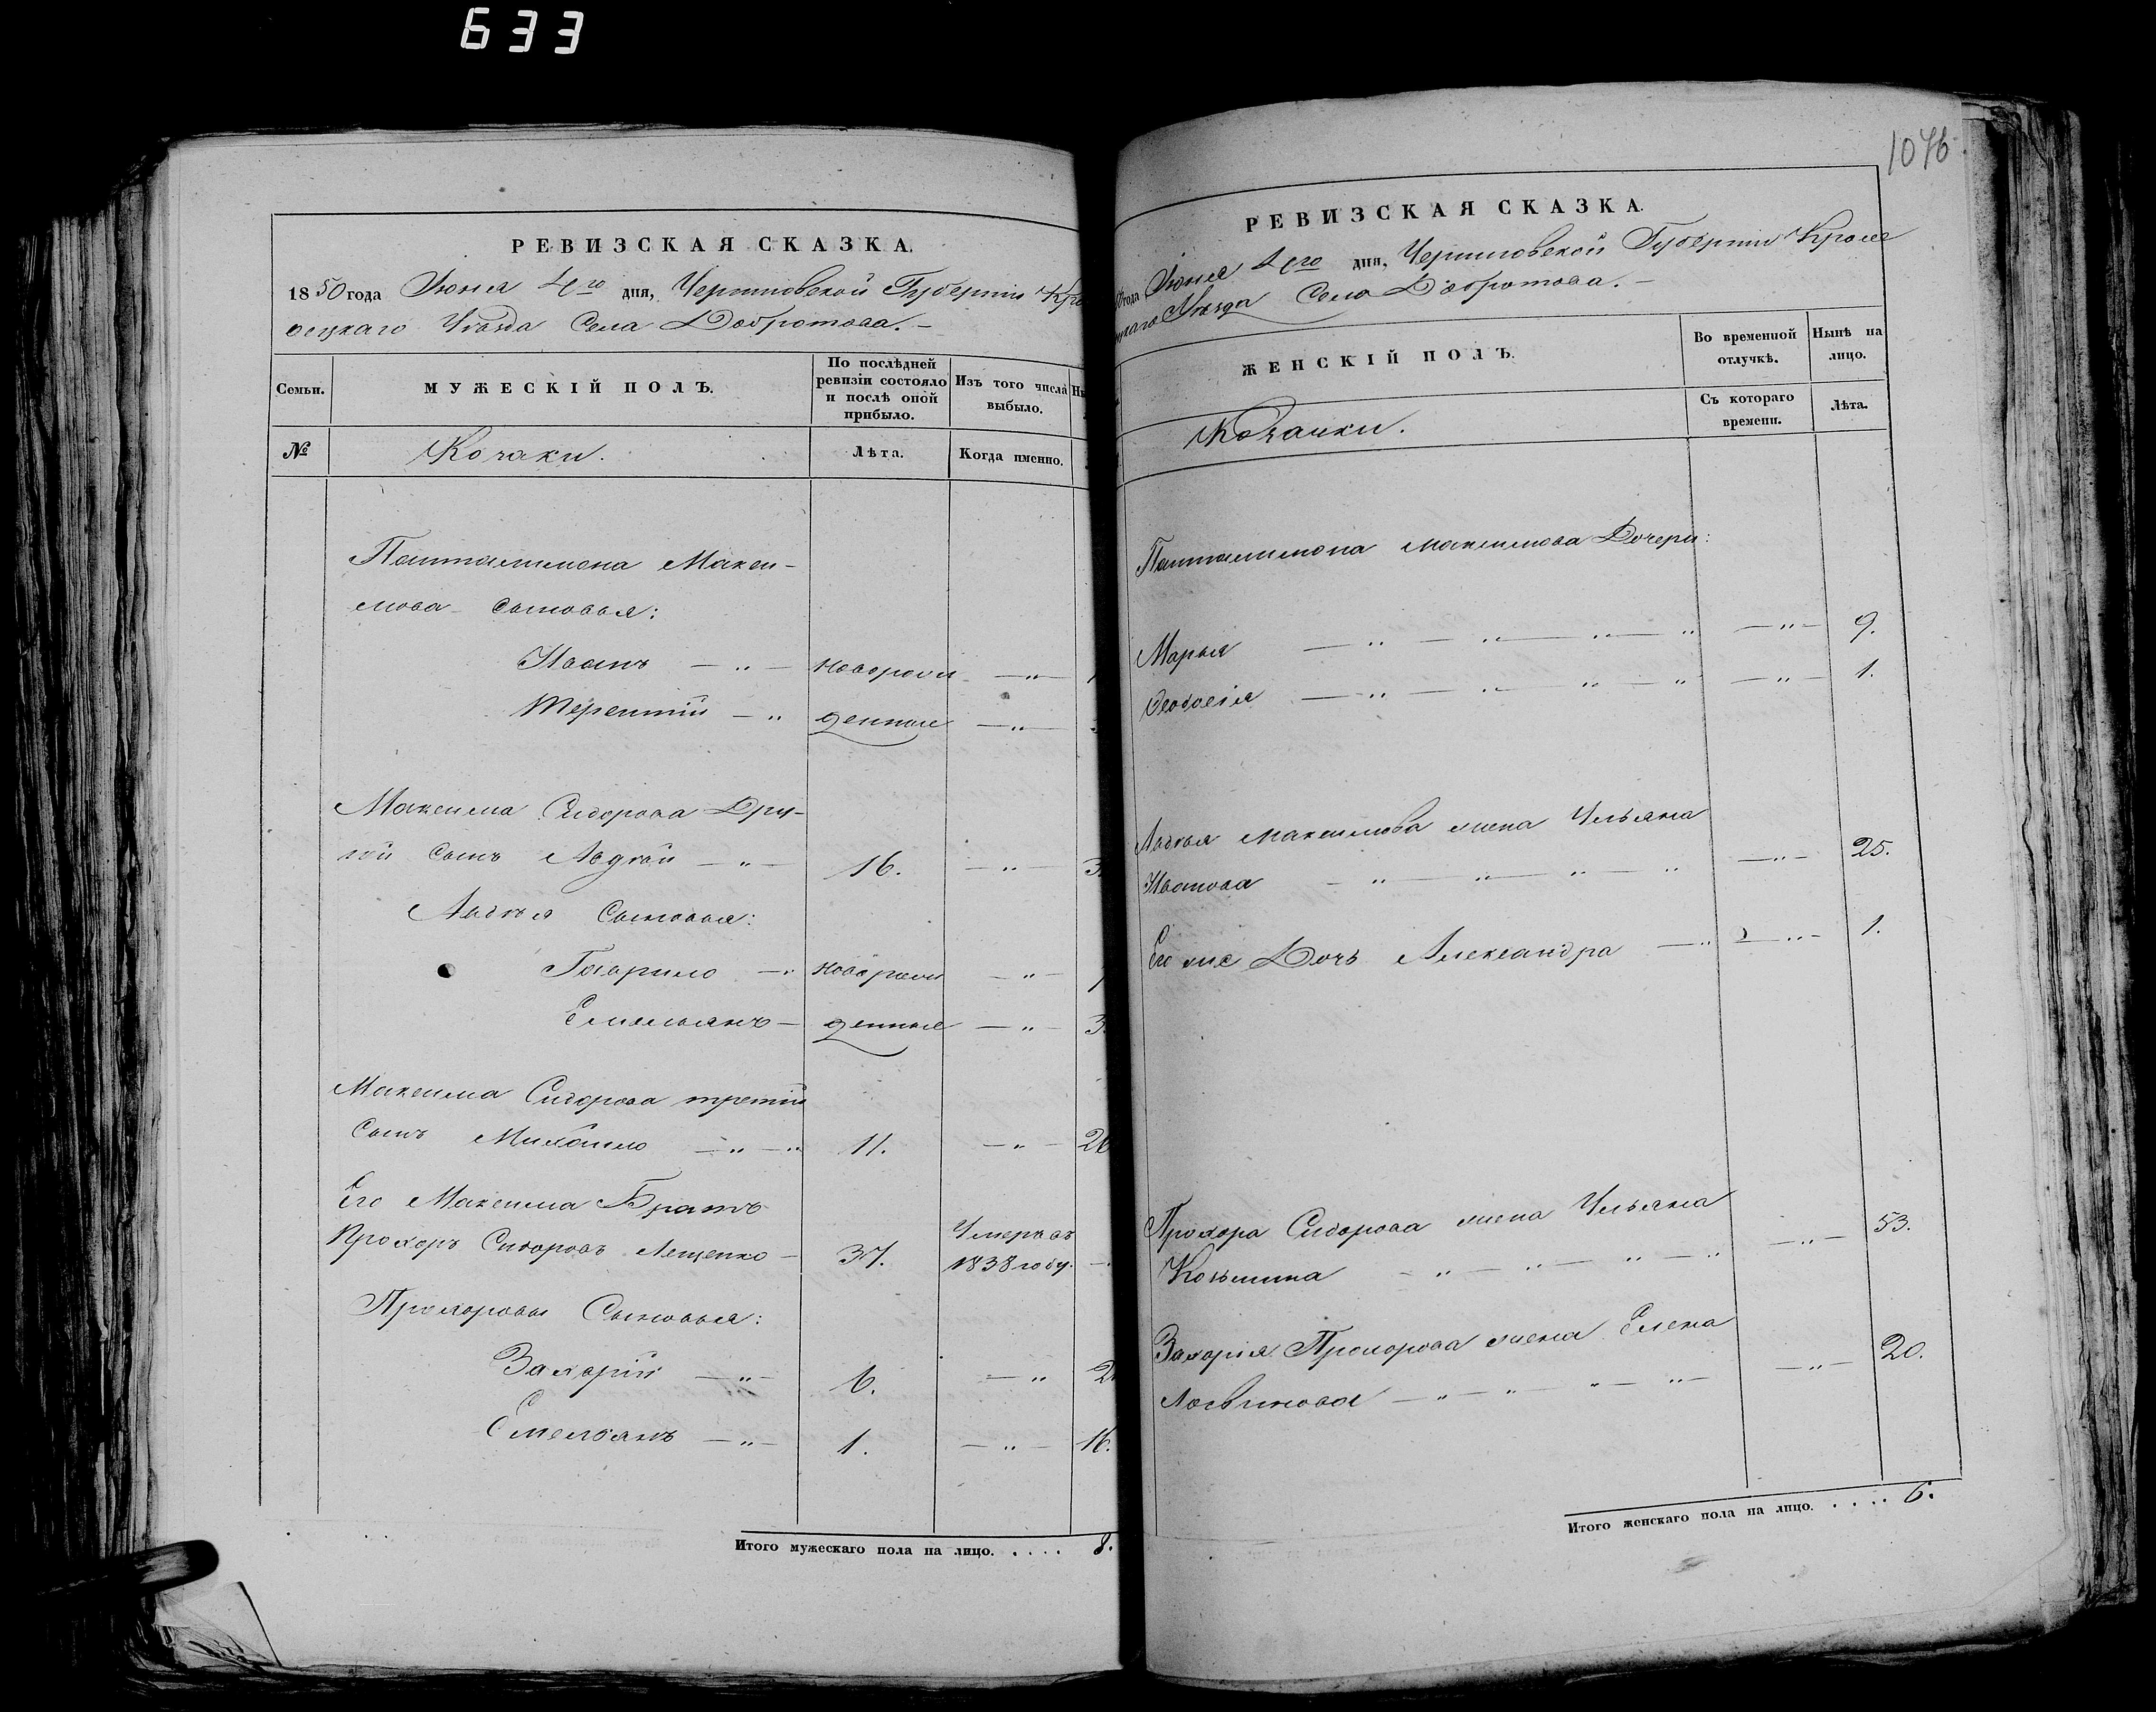 633
РЕВИЗСКАЯ СКАЗКА.
1850 года Июня 4го дня, Черниговской Губернии Кро
вецкаго Уѣзда Села Добротова.
Семьи.
МУЖЕСКІЙ ПОЛЪ.
По послѣдней ревизіи состояло и послѣ оной прибыло.
Изъ того числа выбыло.
№
Козаки.
Лѣта.
Когда именно.
Пантелимона Макси-
мова Сыновья:
Иванъ — „ — новорож — „ —
Терентій — „ денные — „ —
Максима Сидорова Дру-
гой Сынъ Авдѣй — „ — 16. — „ — 3
Авдѣя Сыновья:
Гаврило — „ новорож — „ —
Емельянъ — денные — „ — 3
Максима Сидорова третій
Сынъ Михайло — „ — „ 11. — „ — 26
Его Максима Братъ
Прохоръ Сидоровъ Лещенко — 37. Умеръ въ 1838 году.
Прохоровы Сыновья:
Захарій — „ — 6. — „ 2
Емельянъ — „ — 1. — „ — 16.
Итого мужескаго пола на лицо. . . . . 8.
1076
РЕВИЗСКАЯ СКАЗКА.
года Июня 4го дня, Черниговской Губерніи Кроле
Уѣзда Села Добротова.
ЖЕНСКІЙ ПОЛЪ.
Во временной отлучкѣ.
Нынѣ на лицо.
Козачки.
Съ котораго времени.
Лѣта.
Пантелимона Максимова Дочери:
Марья — „ — „ — „ — „ — „ — 9.
Феодосія — „ — „ — „ — „ — „ — 1.
Авдѣя Максимова жена Ульяна
Иванова — „ — „ — „ — „ — „ — 25.
Его же Дочь Александра — „ — „ — 1.
Прохора Сидорова жена Ульяна
Козьмина — „ — „ — „ — „ — „ — 53.
Захарія Прохорова жена Елена
Логвинова — „ — „ — „ — „ — — „ — 20.
Итого женскаго пола на лицо. . . . . 6.